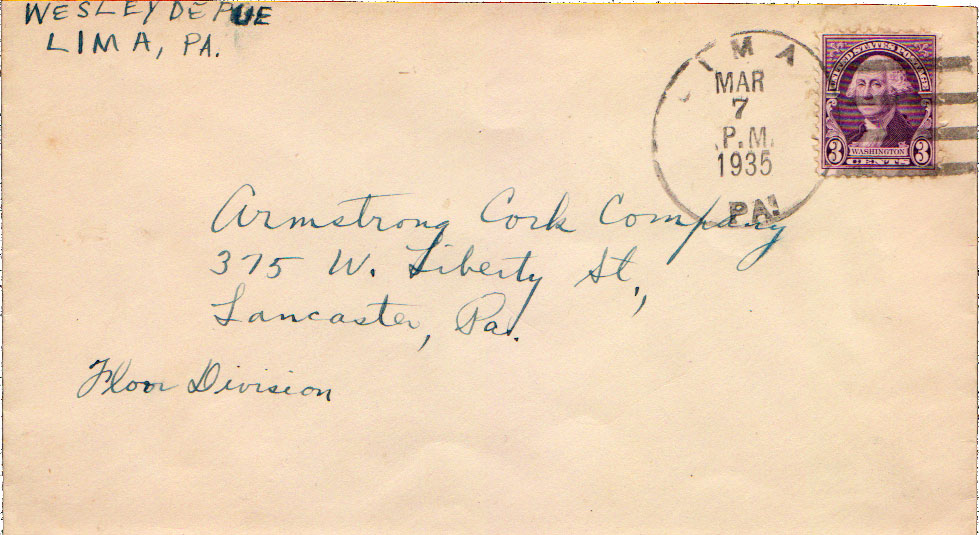 WESLEY DE PUE
LIMA, PA.
LIMA
MAR
7
P.M.
1935
PA.
UNITED STATES POSTAGE
3 WASHINGTON 3
CENTS
Armstrong Cork Company
375 W. Liberty St.,
Lancaster, Pa.
Floor Division